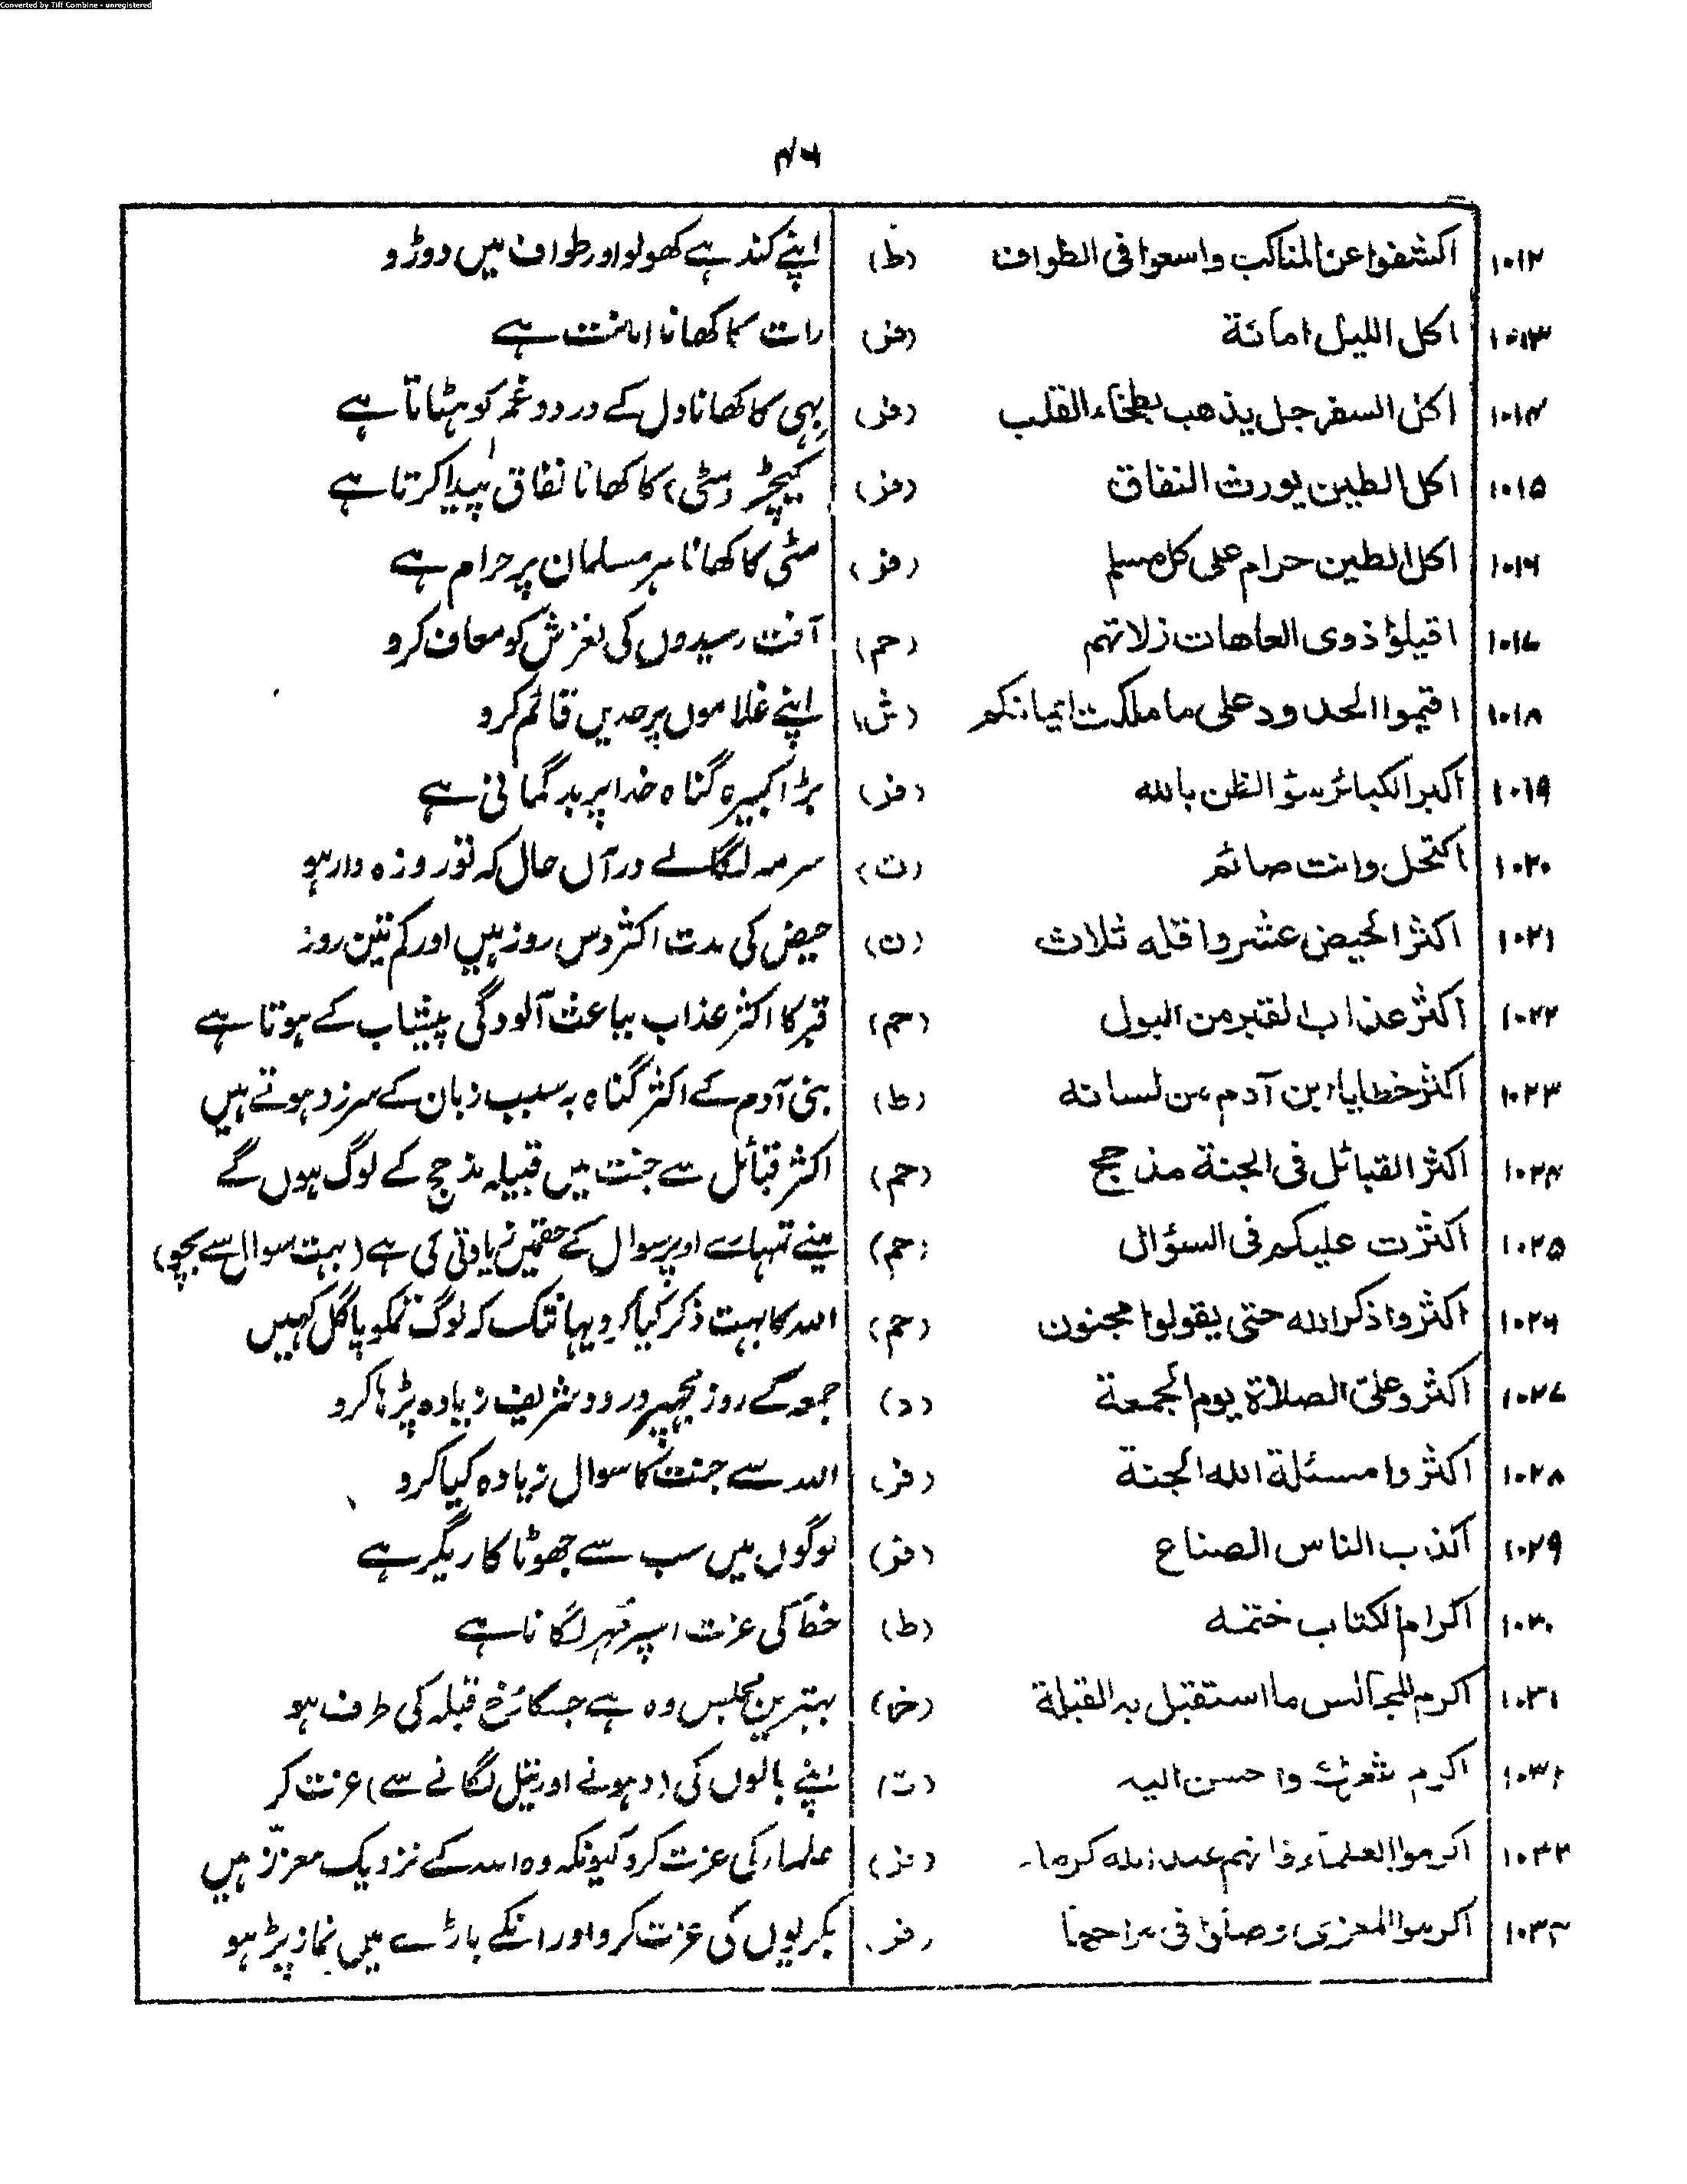 Converted by Tiff Combine - unregistered
۴۶
۱۰۱۲ اکشفوا عن المناکب واسعوا فی الطواف (ط) اپنے کندہے کھولو اور طواف میں دوڑو
۱۰۱۳ اکل اللیل امانة (فر) رات کا کھانا امانت ہے
۱۰۱۴ اکل السفرجل یذهب بطخاء القلب (فر) بہی کا کھانا دل کے درد و غم کو ہٹاتا ہے
۱۰۱۵ اکل الطین یورث النفاق (فر) کیچڑ (مٹی) کا کھانا نفاق پیدا کرتا ہے
۱۰۱۶ اکل الطین حرام علی کل مسلم (فر) مٹی کا کھانا ہر مسلمان پر حرام ہے
۱۰۱۷ اقیلوا ذوی العاهات زلاتهم (حم) آفت رسیدوں کی لغزش کو معاف کرو
۱۰۱۸ اقیموا الحدود علی ما ملکت ایمانکم (ش) اپنے غلاموں پر حدیں قائم کرو
۱۰۱۹ اکبر الکبائر سوٴ الظن بالله (فر) بڑا کبیرہ گناہ خدا پر بدگمانی ہے
۱۰۲۰ اکتحل وانت صائم (ن) سرمہ لگالے درآں حال کہ تو روزہ دار ہو
۱۰۲۱ اکثر الحیض عشر واقله ثلاث (ن) حیض کی مدت اکثر دس روز ہیں اور کم تین روز
۱۰۲۲ اکثر عذاب القبر من البول (حم) قبر کا اکثر عذاب بباعث آلودگی پیشاب کے ہوتا ہے
۱۰۲۳ اکثر خطایا ابن آدم من لسانه (ط) بنی آدم کے اکثر گناہ بہ سبب زبان کے سرزد ہوتے ہیں
۱۰۲۴ اکثر القبائل فی الجنة مذحج (حم) اکثر قبائل سے جنت میں قبیلہ مذحج کے لوگ ہوں گے
۱۰۲۵ اکثرت علیکم فی السؤال (حم) مینے تمہارے اوپر سوال کے حقمیں زیادتی کی ہے (بہت سوال سے بچو)
۱۰۲۶ اکثروا ذکر الله حتی یقولوا مجنون (حم) اللہ کا بہت ذکر کیا کرو یہانتک کہ لوگ تمکو پاگل کہیں
۱۰۲۷ اکثروا علیّ الصلاة یوم الجمعة (د) جمعہ کے روز مجہپر درود شریف زیادہ پڑہا کرو
۱۰۲۸ اکثروا مسئلة الله الجنة (فر) اللہ سے جنت کا سوال زیادہ کیا کرو
۱۰۲۹ اکذب الناس الصناع (فر) لوگوں میں سب سے جھوٹا کاریگر ہے
۱۰۳۰ اکرام الکتاب ختمه (ط) خط کی عزت اسپر مُہر لگانا ہے
۱۰۳۱ اکرم المجالس ما استقبل به القبلة بہترین مجلس وہ ہے جسکا رُخ قبلہ کی طرف ہو
۱۰۳۲ اکرم شعرک واحسن الیه اپنے بالوں کی (دہونے اور تیل لگانے سے) عزت کر
۱۰۳۳ اکرموا العلماء فانهم عند الله کرماء (فر) علماء کی عزت کرو کیونکہ وہ اللہ کے نزدیک معزز ہیں
۱۰۳۴ اکرموا المعزی وصلوا فی مراحها (فر) بکریوں کی عزت کرو اور انکے باڑے میں نماز پڑہو